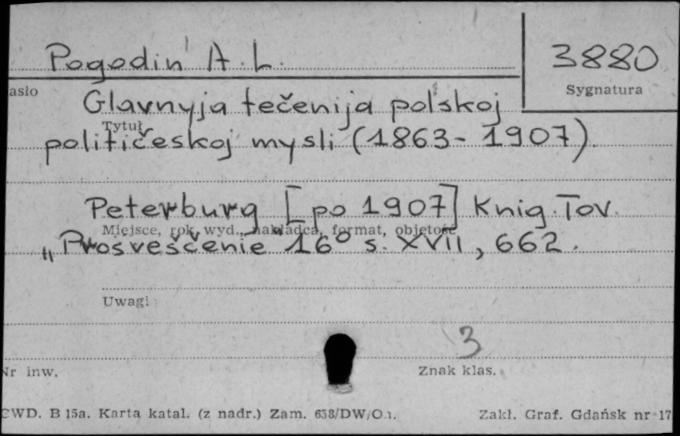 Pogodin A. L.
3880
asło
Sygnatura
Glavnyja tečenija polśkoj
Tytuł
političeskoj mysli (1863-1907).
Peterburg [po 1907] Knig. Tov.
Miejsce, rok wyd., nakładca, format, objętość
„Prosveščenie 16° s. XVII, 662.
Uwagi
3
Nr inw.
Znak klas.
CWD. B 15a. Karta katal. (z nadr.) Zam. 638/DW/O.
Zakł. Graf. Gdańsk nr 17